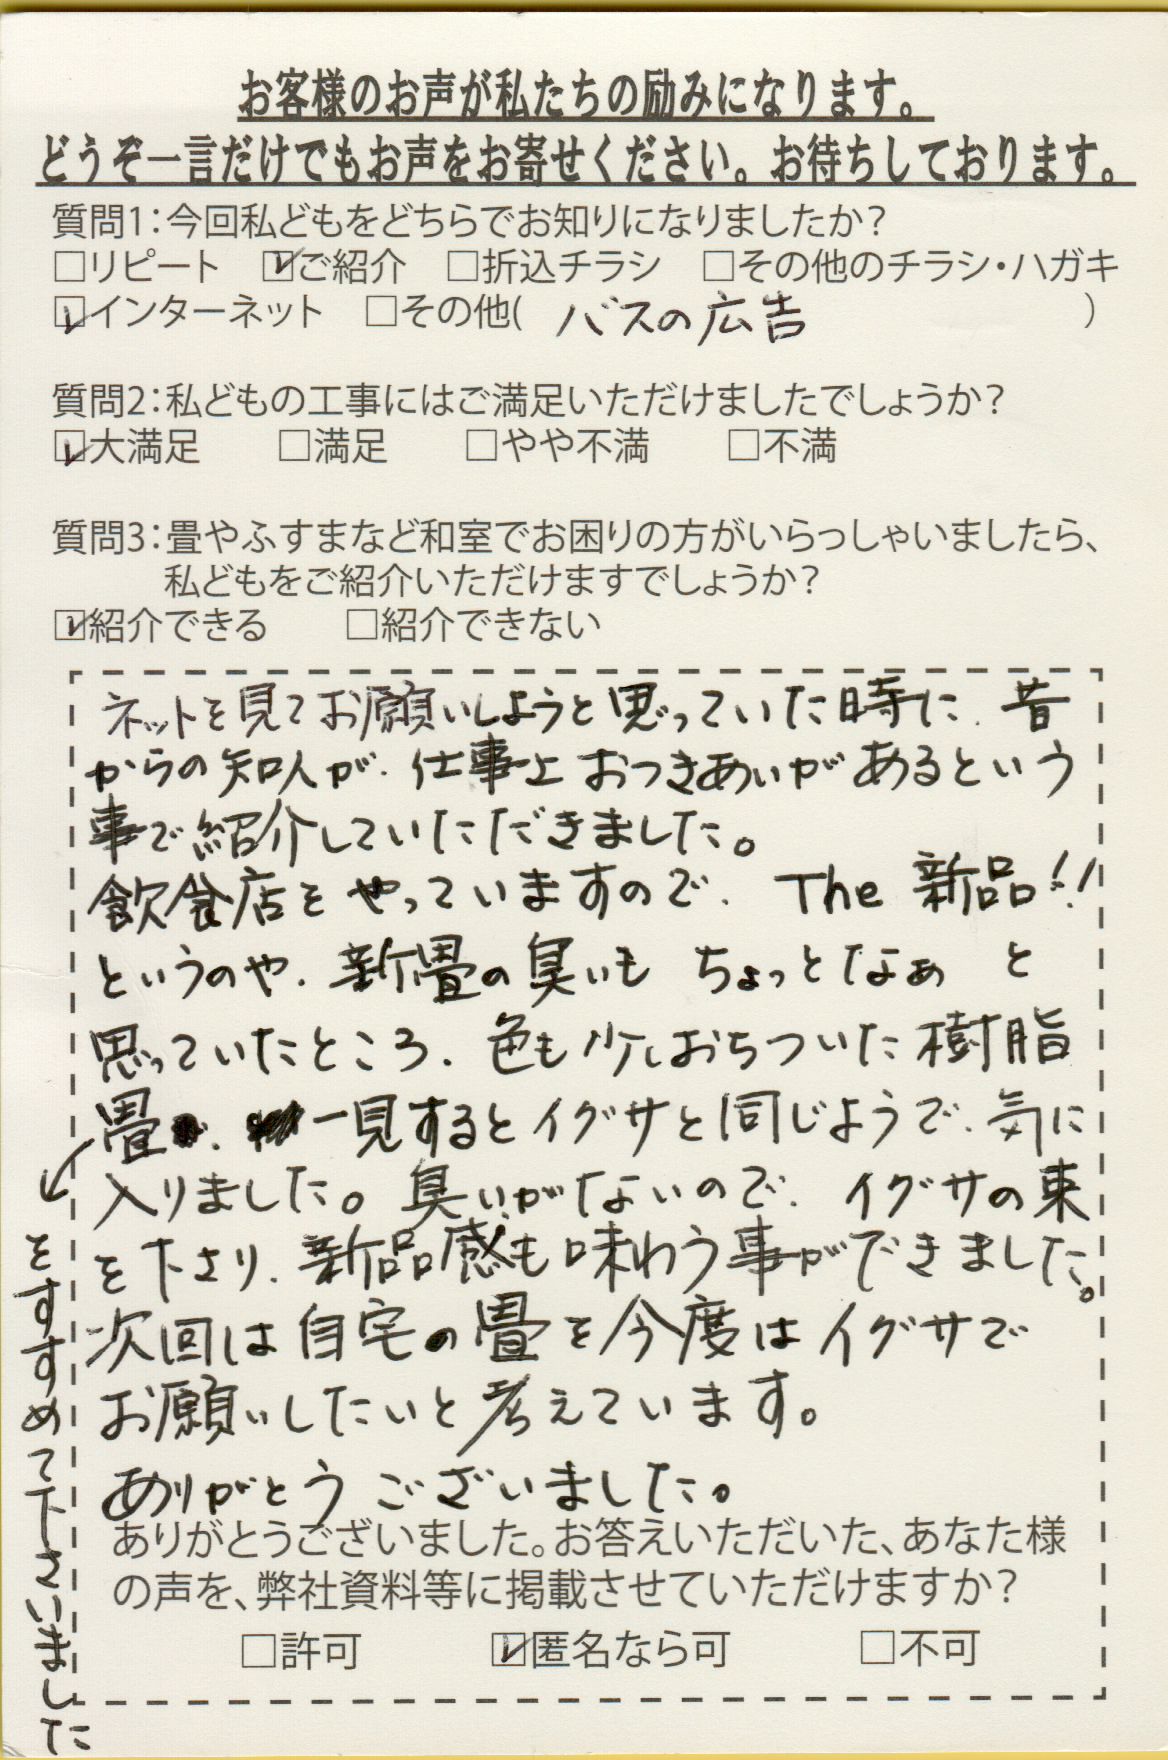 お客様のお声が私たちの励みになります。
どうぞ一言だけでもお声をお寄せください。お待ちしております。
質問1：今回私どもをどちらでお知りになりましたか？
□リピート ☑ご紹介 □折込チラシ □その他のチラシ・ハガキ
☑インターネット □その他( バスの広告 )
質問2：私どもの工事にはご満足いただけましたでしょうか？
☑大満足 □満足 □やや不満 □不満
質問3：畳やふすまなど和室でお困りの方がいらっしゃいましたら、
私どもをご紹介いただけますでしょうか？
☑紹介できる □紹介できない
ネットを見てお願いしようと思っていた時に、昔
からの知人が、仕事上おつきあいがあるという
事で紹介していただきました。
飲食店をやっていますので、The 新品!!
というのや、新畳の臭いも ちょっとなぁ と
思っていたところ、色も少しおちついた樹脂
畳、一見するとイグサと同じようで、気に
入りました。臭いがないので、イグサの束
を下さり、新品感も味わう事ができました。
次回は自宅の畳を今度はイグサで
お願いしたいと考えています。
ありがとうございました。
をすすめて下さいました
ありがとうございました。お答えいただいた、あなた様
の声を、弊社資料等に掲載させていただけますか？
□許可 ☑匿名なら可 □不可